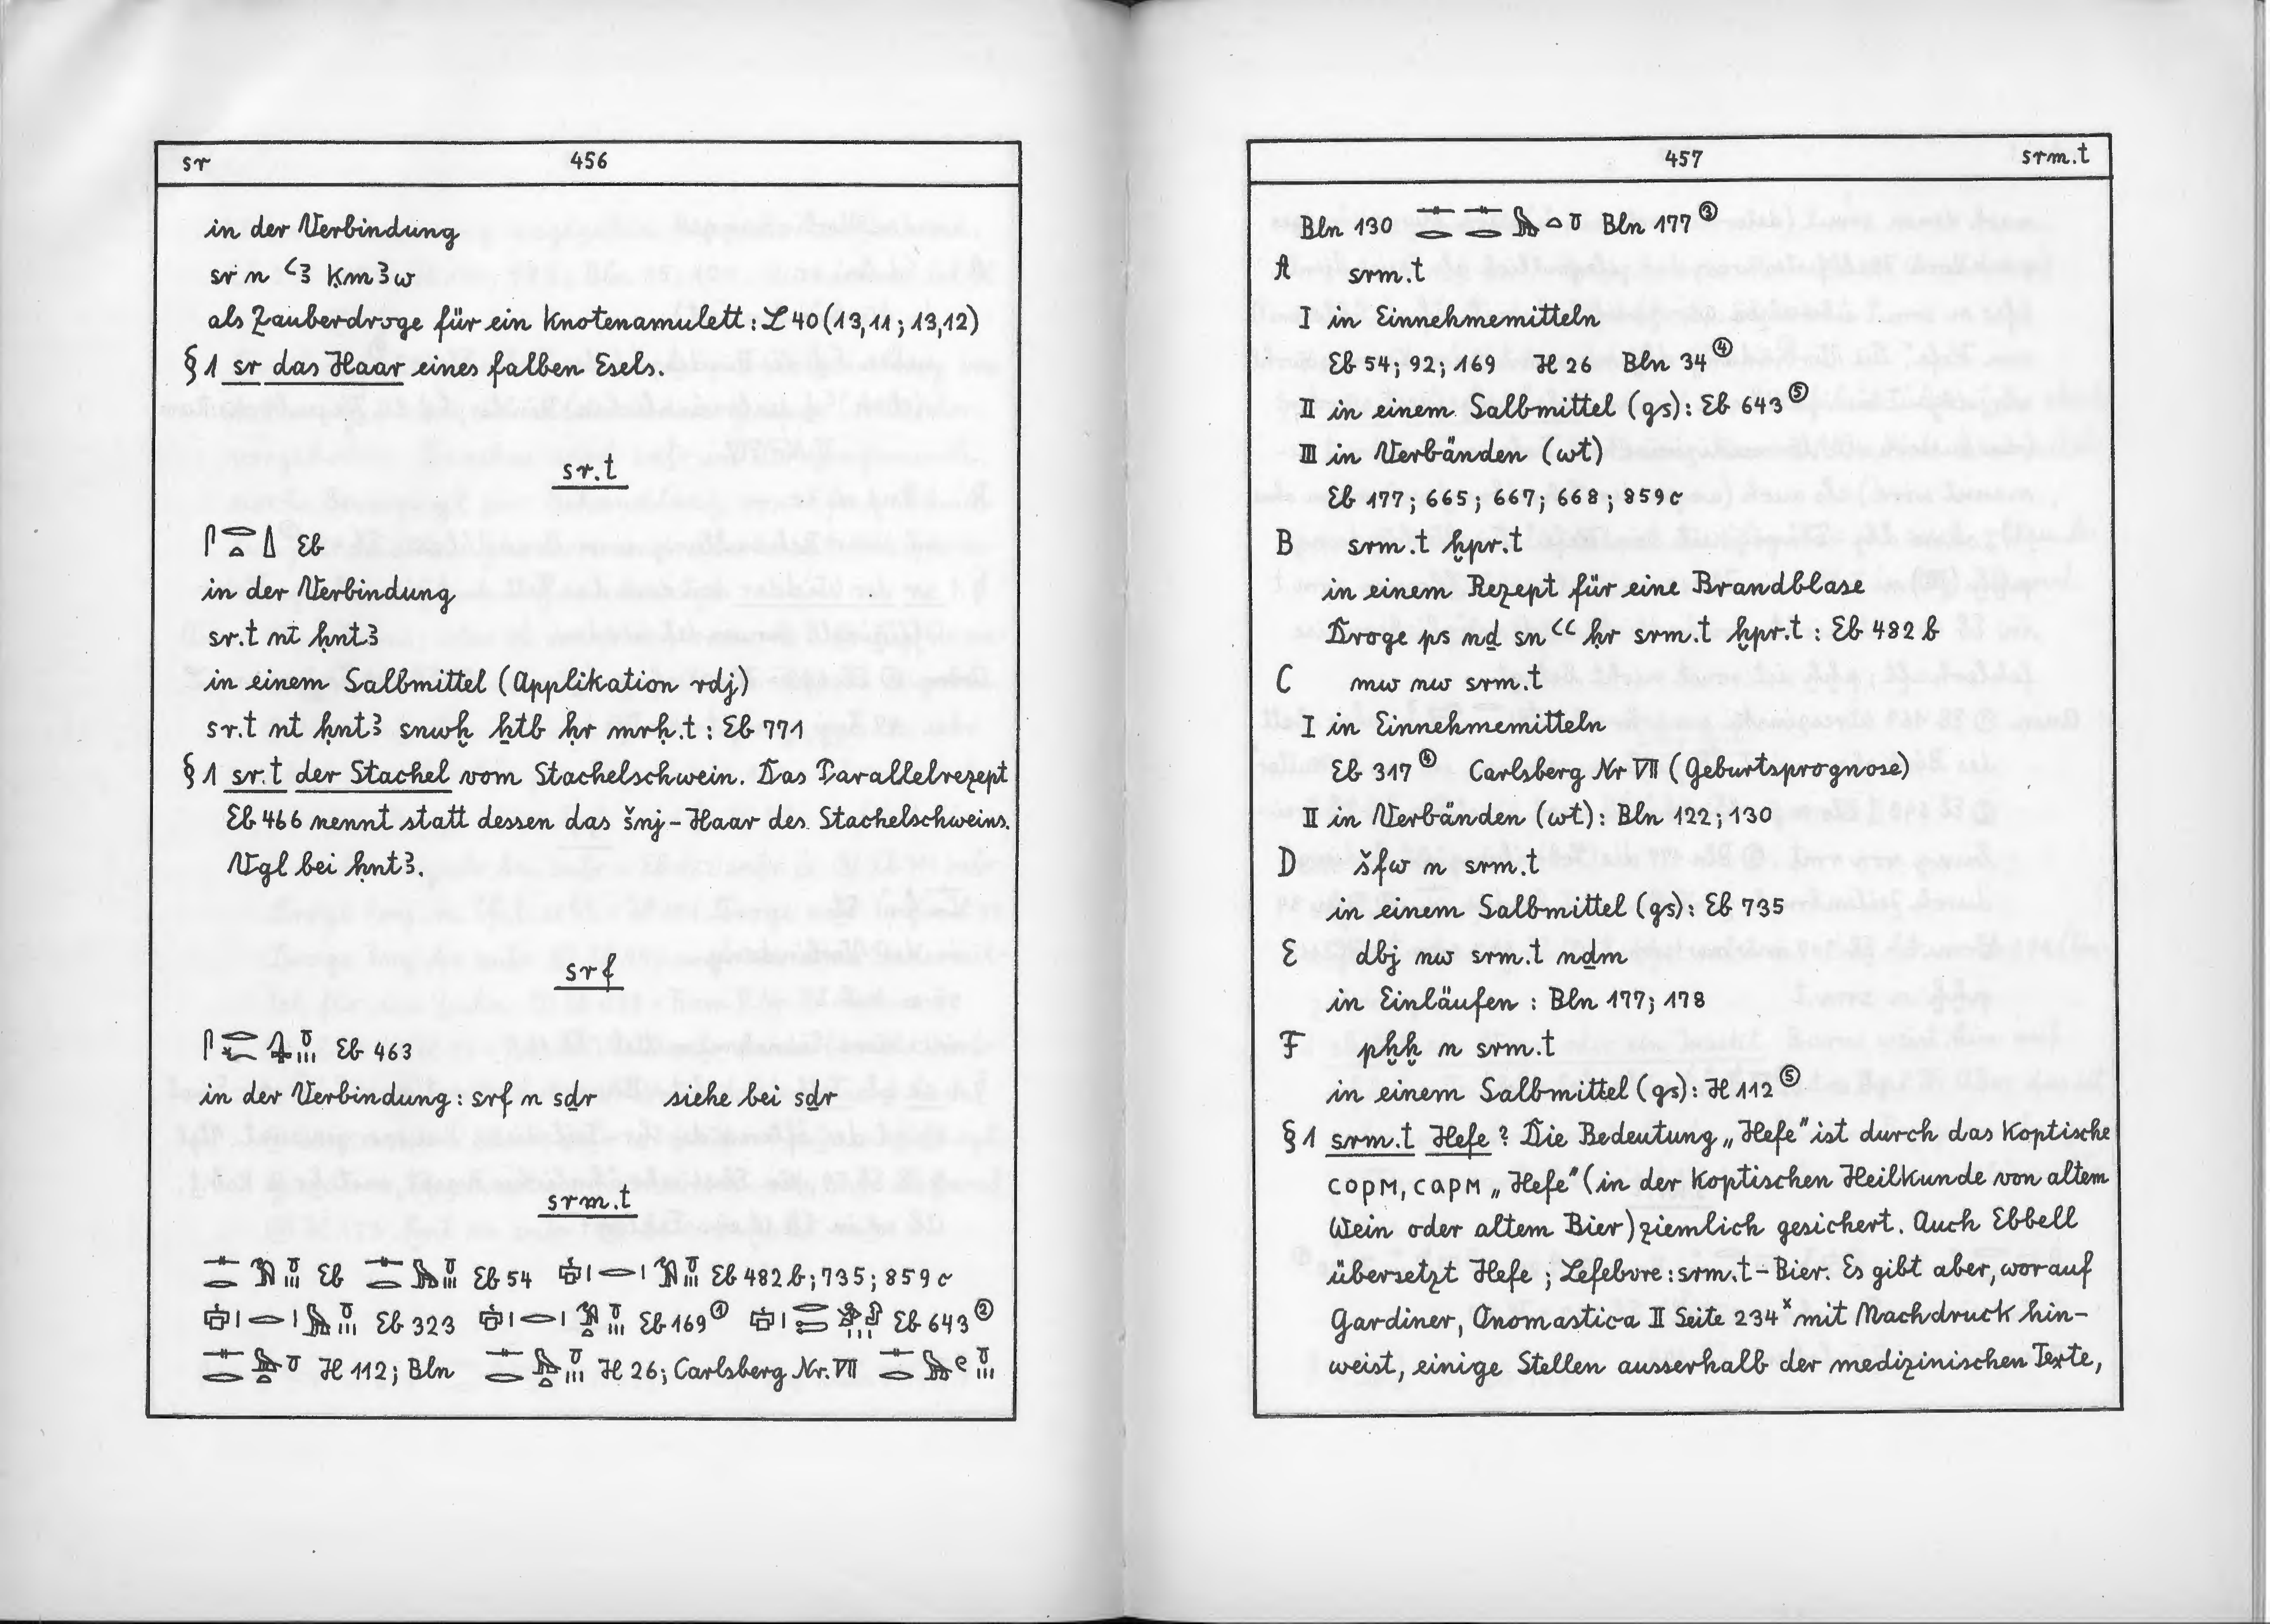 sr 456
in der Verbindung
sr n ꜥꜣ ḳmꜣw
als Zauberdroge für ein Knotenamulett: L 40 (13,11; 13,12)
§ 1 sr das Haar eines falben Esels.
sr.t
Eb
in der Verbindung
sr.t nt ḥntꜣ
in einem Salbmittel (Applikation rdj)
sr.t nt ḥntꜣ snwḫ ẖtb ḥr mrḥ.t: Eb 771
§ 1 sr.t der Stachel vom Stachelschwein. Das Parallelrezept
Eb 466 nennt statt dessen das šnj-Haar des Stachelschweins.
Vgl bei ḥntꜣ.
srf
Eb 463
in der Verbindung: srf n sḏr siehe bei sḏr
srm.t
Eb Eb 54 Eb 482 b; 735; 859 c
Eb 323 Eb 169 ① Eb 643 ②
H 112; Bln H 26; Carlsberg Nr. VII
457 srm.t
Bln 130 Bln 177 ③
A srm.t
I in Einnehmemitteln
Eb 54; 92; 169 H 26 Bln 34 ④
II in einem Salbmittel (gs): Eb 643 ⑤
III in Verbänden (wt)
Eb 177; 665; 667; 668; 859 c
B srm.t ḫpr.t
in einem Rezept für eine Brandblase
Droge ps nḏ snꜥꜥ ḥr srm.t ḫpr.t: Eb 482 b
C mw nw srm.t
I in Einnehmemitteln
Eb 317 ④ Carlsberg Nr VII (Geburtsprognose)
II in Verbänden (wt): Bln 122; 130
D šfw n srm.t
in einem Salbmittel (gs): Eb 735
E dbj nw srm.t nḏm
in Einläufen: Bln 177; 178
F pḫḫ n srm.t
in einem Salbmittel (gs): H 112 ⑤
§ 1 srm.t Hefe? Die Bedeutung „Hefe“ ist durch das Koptische
ⲥⲟⲣⲙ, ⲥⲁⲣⲙ „Hefe“ (in der koptischen Heilkunde von altem
Wein oder altem Bier) ziemlich gesichert. Auch Ebbell
übersetzt Hefe; Lefebvre: srm.t-Bier. Es gibt aber, worauf
Gardiner, Onomastica II Seite 234ˣ mit Nachdruck hin-
weist, einige Stellen ausserhalb der medizinischen Texte,